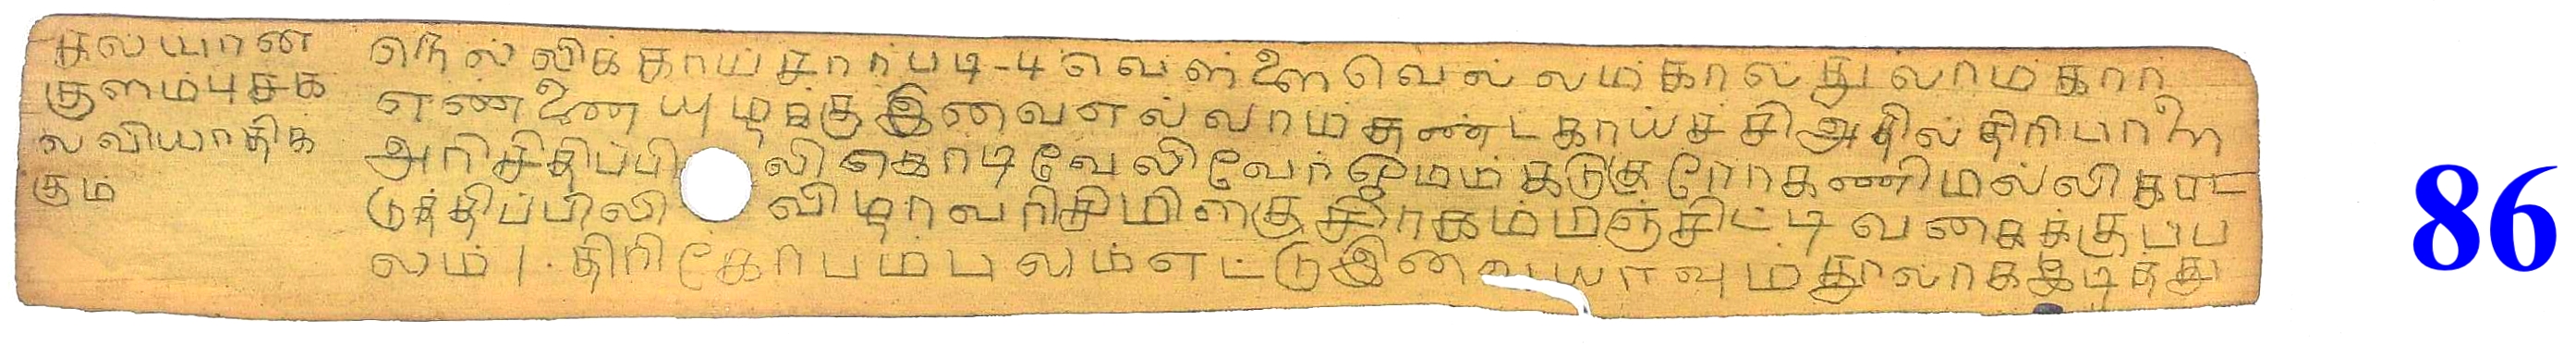 கலயான
குளம்புசக
ல வியாதிக
கும்
நெல்லிக்காய்சாார்படி-4 வெள்ளை வெல்லம் கால் துலாம் கார்
எண்ணை யுழக்கு இவைஎல்லாம் கண்ட காய்ச்சி அதில் திரிபாலை
அரிசிதிப்பிலி கொடிவேலிவேர் ஓமம் கடுகுரோகணி மல்லி காட
டுத்திப்பிலி விழாவரிசி மிளகு சீரகம் மஞ்சிட்டி வகைக்குப்ப
லம் 1. திரிகோபம் பலம் எட்டு இவையாவும் தூலாக இடித்து
86